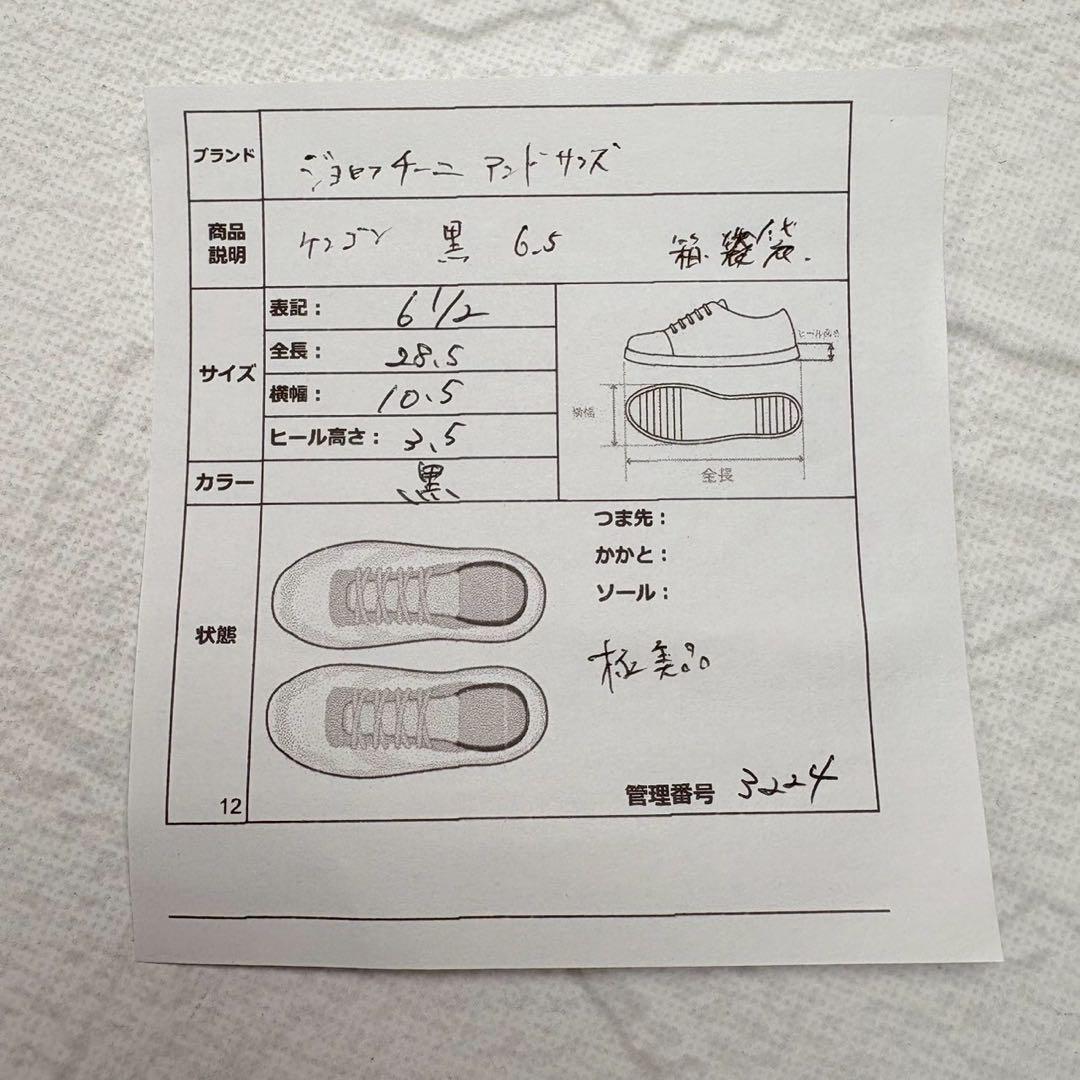 ブランド ジョセフ チーニー アンド サンズ
商品説明 ケンゴン 黒 6.5 箱.袋.
サイズ
表記: 6 1/2
全長: 28.5
横幅: 10.5
ヒール高さ: 3.5
ヒール高さ
横幅
全長
カラー 黒
状態
つま先:
かかと:
ソール:
極美品
12
管理番号 3224